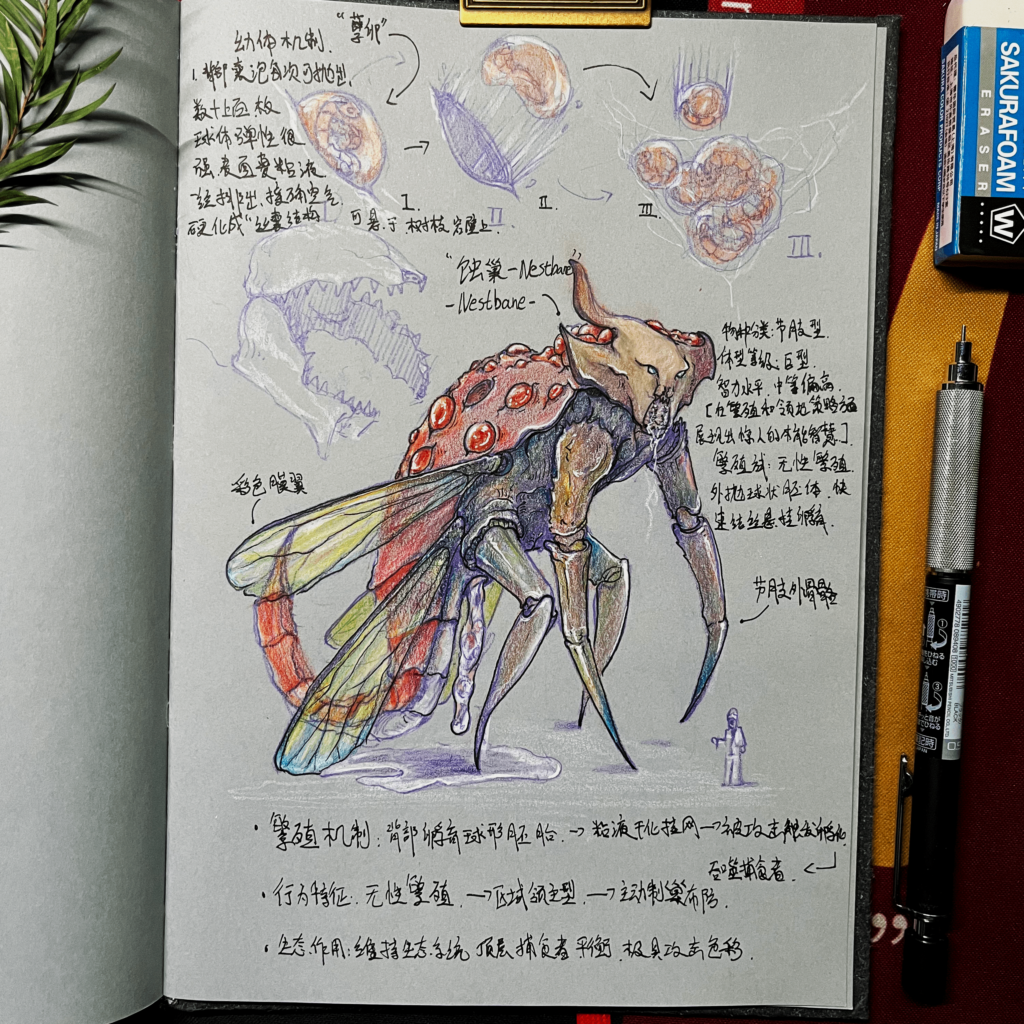 幼体机制.
"孽卵"
1.卵囊泡每次可抛出
数十上百枚
球体弹性很
强.表面裹粘液
一经抛出,接触空气
硬化成"丝囊结构 可悬于树枝岩壁上.
I.
II
II.
III.
III.
"蚀巢-Nestbane"
-Nestbane-
物种分类:节肢型.
体型等级:巨型.
智力水平.中等偏高.
[在繁殖和领地策略方面
展现出惊人的本能智慧].
繁殖式:无性繁殖.
外抛球状胚体.快
速结丝悬挂孵育.
彩色膜翼
节肢外骨骼
·繁殖机制:背部孵育球形胚胎.→粘液干化挂网→被攻击触发孵化.
吞噬捕食者.
·行为特征.无性繁殖.→区域领主型.→主动制巢布防.
·生态作用:维持生态系统 顶层捕食者平衡.极具攻击色彩.
SAKURAFOAM
ERASER
SAKURA COLOR PRODUCTS
W
BLACK